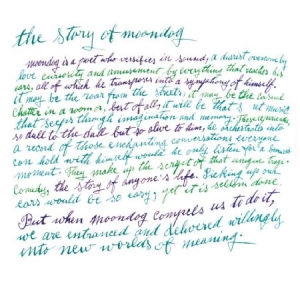 the story of moondog
moondog is a poet who versifies in sound, a diarist overcome by
love curiosity and amusement by everything that reaches his
ears, all of which he transposes into a symphony of himself.
it may be the roar from the streets, it may be the casual
chatter in a room or, best of all, it will be that music
that seeps through imagination and memory. These,
so dull to the dull but so alive to him, he orchestrates into
a record of those enchanting conversations everyone
can hold with himself would he only listen for a
moment. They make up the script of that unique tragi-
comedy, the story of anyone's life. Picking up our
ears would be so easy, yet it is seldom done.
But when moondog compels us to do it,
we are entranced and delivered willingly
into new worlds of meaning.